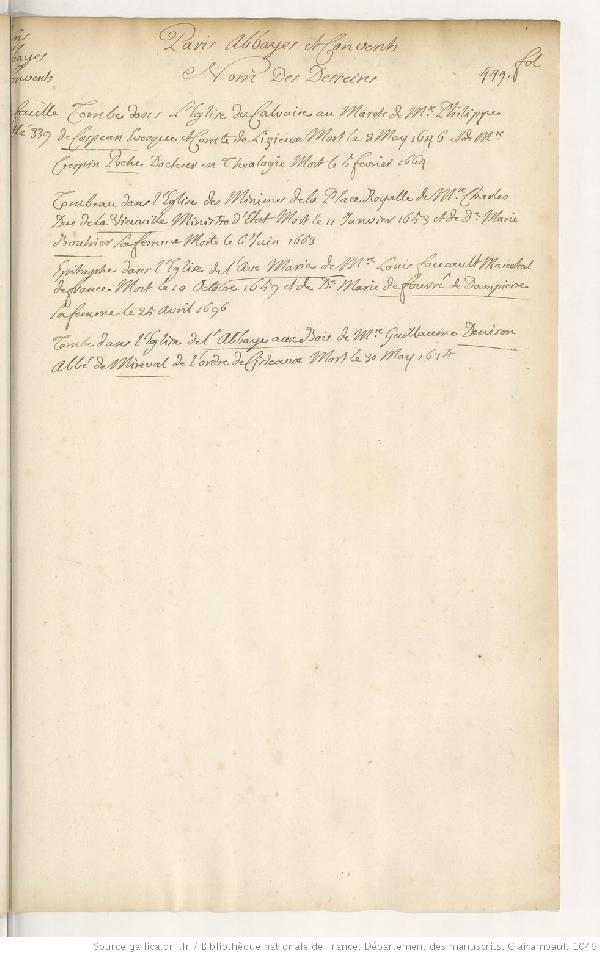 Paris Abbayes et Convents
Nom Des Desseins
499. fol
feuille Tombe dans l'Eglise du Calvaire au Marets de Mre. Philippe
339 de Cospean Evesque et Comte de Lizieux Mort le 8 May 1646 et de Mre
Crespin Poche Docteur en Theologie Mort le 5 fevrier 1664
Tombeau dans l'Eglise des Minimes de la Place Royalle de Mre. Charles
Duc de la Vieuville Ministre d'Etat Mort le 11 Janvier 1653 et de De. Marie
Bouhier sa femme Morte le 6 Juin 1663
Epitaphe dans l'Eglise de l'Ave Maria de Mre Louis foucault Mareschal
de france Mort le 10 Octobre 1659 et de De Marie de fouvré de Dampierre
sa femme le 25 avril 1696
Tombe dans l'Eglise de l'Abbaye aux Bois de Mre Guillaume Denison
Abbé de Mireval de l'ordre de Cisteaux Mort le 30 May 1614
Source gallica.bnf.fr / Bibliothèque nationale de France. Département des manuscrits. Clairambault, 1046